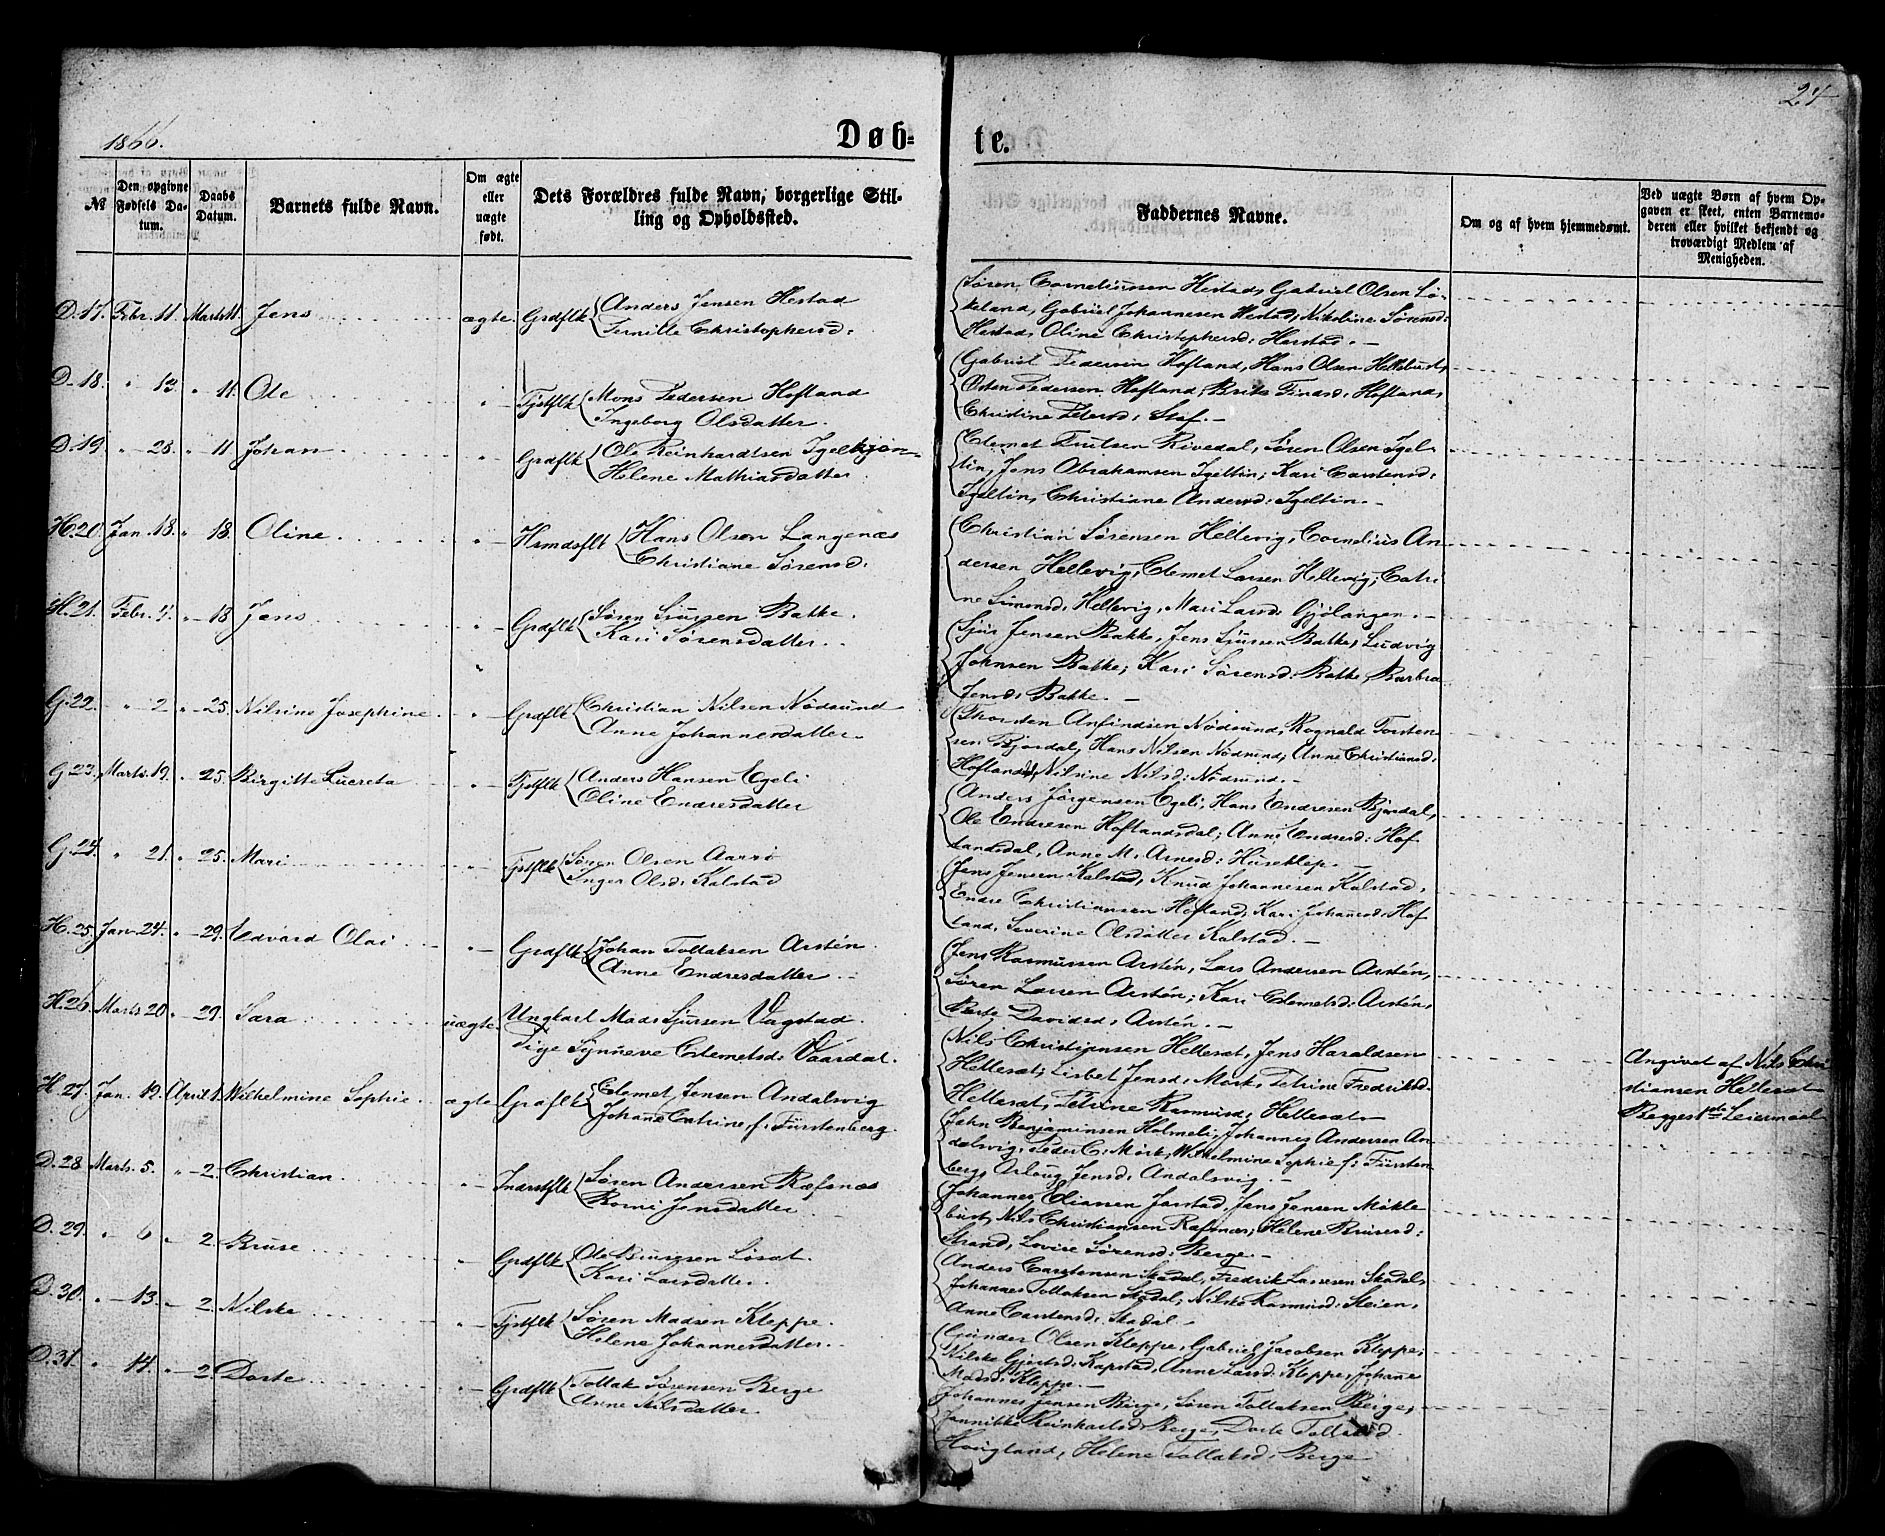 24
1866.
Døb-
te.
№
Den opgivne Fødsels Datum.
Daabs Datum.
Barnets fulde Navn.
Om ægte eller uægte født.
Dets Forældres fulde Navn, borgerlige Stilling og Opholdssted.
Faddernes Navne.
Om og af hvem hjemmedømt.
Ved uægte Børn af hvem Opgaven er skeet, enten Barnemoderen eller hvilket bekjendt og troværdigt Medlem af Menigheden.
D. 17. Febr. 11. Marts 11. Jens ægte Grdflk Anders Jensen Hestad
Pernille Christophersd:
Søren Corneliussen Hestad, Gabriel Olsen Lø-
keland, Gabriel Johannesen Hestad, Nikoline Sørensd:
Hestad, Oline Christophersd: Harstad. -
D. 18. " 13. " 11. Ole " Tjstflk Mons Pedersen Hofland
Ingeborg Olsdatter.
Gabriel Pedersen Hofland, Hans Olsen Hellebust,
Østen Pedersen Hofland, Brite Findsd: Hofland,
Christine Pedersd: Staf. -
D. 19. " 28. " 11 Johan " Grdflk Ole Reinhardtsen Igelkjøn
Helene Mathiasdatter
Clemet Poulsen Rivedal, Søren Olsen Igel-
tin, Jens Abrahamsen Igeltin, Kari Carstensd:
Igeltin, Christiane Andersd: Igeltin. -
H. 20. Jan. 18. " 18. Oline " Hsmdsflk Hans Olsen Langenæs
Christiane Sørensd:
Christian Sørensen Hellevig, Cornelius An-
dersen Hellevig, Clemet Larsen Hellevig, Catri-
ne Simensd: Hellevig, Mari Larsd: Gjølangen. -
H. 21. Febr. 4. " 18 Jens " Grdflk Søren Sjursen Bakke.
Kari Sørensdatter.
Sjur Jensen Bakke, Jens Sjursen Bakke, Ludvig
Johnsen Bakke, Kari Sørensd: Bakke, Barbra
Jensd: Bakke. -
G. 22. " 2 " 25. Nilsine Josephine " Grdflk Christian Nilsen Nødsund
Anne Johannesdatter.
Thorsten Anfindsen Nødsund, Rognald Torsten-
sen Bjordal, Hans Nilsen Nødsund, Anne Christiansd:
Hofland, Nilsine Nilsd: Nødsund. -
G. 23. Marts 19. " 25. Birgitte Lucreta " Tjstflk Anders Hansen Egeli
Oline Endresdatter
Anders Jørgensen Egeli, Hans Endresen Bjordal,
Ole Endresen Hoflandsdal, Anne Endresd: Hof-
landsdal, Anne M. Arnesd: Huseklep. -
G. 24. " 21. " 25. Mari " Tjstflk Søren Olsen Aarrö
Inger Olsd: Kalstad
Jens Jensen Kalstad, Knud Johannesen Kalstad,
Endre Christiansen Hofland, Kari Johansd: Hof-
land, Severine Olsdatter Kalstad. -
H. 25. Jan. 24. " 29. Edvard Olai " Grdflk Johan Tollaksen Arstén.
Anne Endresdatter
Jens Rasmussen Arstén, Lars Andersen Arstén,
Søren Larsen Arstén, Kari Clemetsd: Arstén,
Berte Davidsd: Arstén. -
H. 26. Marts 20. " 29. Sara uægte Ungkarl Mads Sjursen Vagstad.
Pige Synneve Clemetsd: Vaardal.
Nils Christiansen Hellesæt, Jens Haraldsen
Hellesæt, Lisbet Jensd: Mørk, Petrine Fredriksd:
Hellesæt, Petrine Rasmusd: Hellesæt
Angivet af Nils Chri-
stiansen Hellesæt
Begges 1ste Leiermaal
H. 27. Jan. 19. April 1. Wilhelmine Sophie ægte Grdflk Clemet Jensen Andalsvig
Johane Catrine f: Fürstenberg.
John Benjaminsen Holmeli, Johannes Andersen An-
dalsvig, Peder C. Mørk, Wilhelmine Sophie f: Fürsten-
berg, Aslaug Jensd: Andalsvig. -
D. 28. Marts 5. " 2. Christian " Inderstflk Søren Andersen Ræfsnæs
Borni Jensdatter
Johannes Eliassen Jarstad, Jens Jensen Møkle-
bust, Nils Christiansen Rafsnæs, Helene Brusesd:
Strand, Lovise Sørensd: Berge. -
D. 29. " 6 " 2. Bruse " Grdflk Ole Brusesen Løset
Kari Larsdatter.
Anders Carstensen Skadal, Fredrik Larsen Skadal,
Johannes Tollaksen Skadal, Nilske Rasmusd: Steien,
Anne Carstensd: Skadal -
D. 30. " 13. " 2. Nilske " Tjstflk Søren Madsen Kleppe.
Helene Johannesdatter.
Gunder Olsen Kleppe, Gabriel Jacobsen Kleppe,
Nilske Gjertsd: Kapstad, Anne Larsd: Kleppe, Johane
Madsd: Kleppe. -
D. 31. " 14. " 2 Dorte " Grdflk Tollak Sørensen Berge
Anne Nilsdatter
Johannes Jensen Berge, Søren Tollaksen Berge,
Jannikke Reinhartsd: Berge, Dorte Tollaksd.
Hougland, Helene Tollaksd: Berge